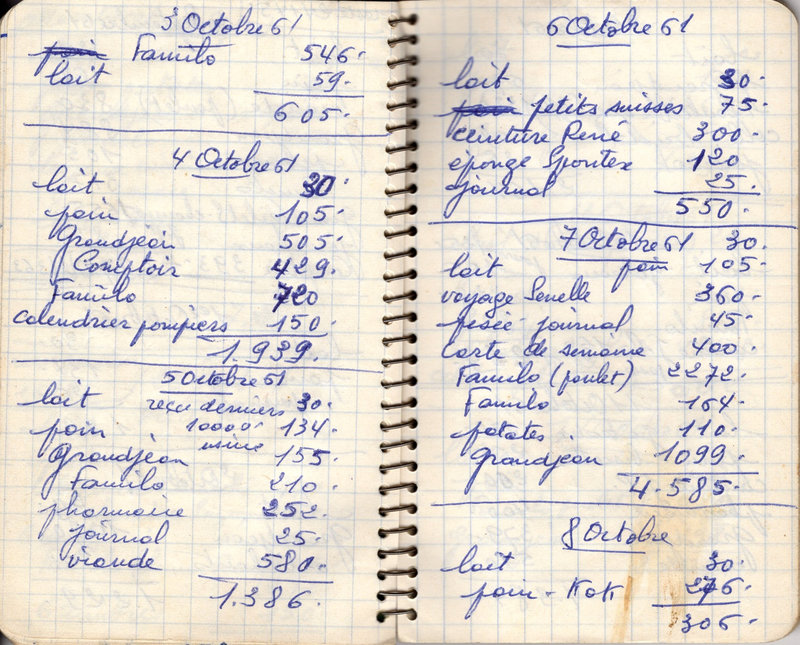 3 Octobre 61
pain Familo 546.
lait 59.
605.
4 Octobre 61
lait 30.
pain 105.
Grandjean 505.
Comptoir 429.
Familo 720
calendrier pompiers 150.
1.939.
5 Octobre 61
lait reçu derniers 30.
pain 10000 usine 134.
Grandjean 155.
Familo 210.
pharmacie 252.
journal 25.
viande 580.
1.386.
6 Octobre 61
lait 30.
pain petits suisses 75.
ceinture René 300.
éponge Spontex 120
journal 25.
550.
7 Octobre 61 30.
lait pain 105.
voyage Senelle 360.
pesée journal 45.
Carte de semaine 400.
Familo (poulet) 2272.
Familo 164.
patates 110.
Grandjean 1099.
4.585.
8 Octobre
lait 30.
pain - KoK 276.
306.